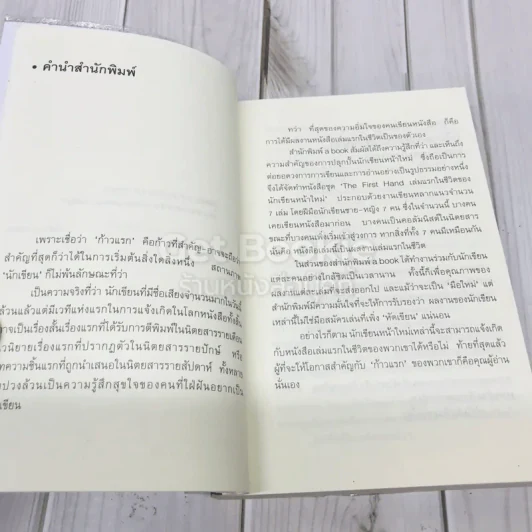 • คำนำสำนักพิมพ์
เพราะเชื่อว่า 'ก้าวแรก' คือก้าวที่สำคัญ-อาจจะถือ
สำคัญที่สุดก็ว่าได้ในการเริ่มต้นสิ่งใดสิ่งหนึ่ง สถานภาพ
'นักเขียน' ก็ไม่พ้นลักษณะที่ว่า
เป็นความจริงที่ว่า นักเขียนที่มีชื่อเสียงจำนวนมากในวันนี้
ล้วนแล้วแต่มีเวทีแห่งแรกในการแจ้งเกิดในโลกหนังสือทั้งสิ้น
อาจเป็นเรื่องสั้นเรื่องแรกที่ได้รับการตีพิมพ์ในนิตยสารรายเดือน
นวนิยายเรื่องแรกที่ปรากฏตัวในนิตยสารรายปักษ์ หรือ
ทความชิ้นแรกที่ถูกนำเสนอในนิตยสารรายสัปดาห์ ทั้งหลาย
ปวงล้วนเป็นความรู้สึกสุขใจของคนที่ใฝ่ฝันอยากเป็น
เขียน
ทว่า ที่สุดของความอิ่มใจของคนเขียนหนังสือ ก็คือ
การได้มีผลงานหนังสือเล่มแรกในชีวิตเป็นของตัวเอง
สำนักพิมพ์ a book สัมผัสได้ถึงความรู้สึกที่ว่า และเห็นถึง
ความสำคัญของการปลุกปั้นนักเขียนหน้าใหม่ ซึ่งถือเป็นการ
ต่อยอดวงการการเขียนและการอ่านอย่างเป็นรูปธรรมอย่างหนึ่ง
จึงได้จัดทำหนังสือชุด 'The First Hand เล่มแรกในชีวิตของ
นักเขียนหน้าใหม่' ประกอบด้วยงานเขียนหลากแนวจำนวน
7 เล่ม โดยฝีมือนักเขียนชาย-หญิง 7 คน ซึ่งในจำนวนนี้ บางคน
เคยเขียนหนังสือมาก่อน บางคนเป็นคอลัมนิสต์ในนิตยสาร
ขณะที่บางคนเพิ่งเริ่มเข้าสู่วงการ หากสิ่งที่ทั้ง 7 คนมีเหมือนกัน
นั่นคือ หนังสือเล่มนี้เป็นผลงานเล่มแรกในชีวิต
ในส่วนของสำนักพิมพ์ a book ได้ทำงานร่วมกับนักเขียน
แต่ละคนอย่างใกล้ชิดเป็นเวลานาน ทั้งนี้ก็เพื่อคุณภาพของ
ผลงานในแต่ละเล่มที่จะส่งออกไป และแม้ว่าจะเป็น "มือใหม่" แต่
สำนักพิมพ์มีความมั่นใจที่จะให้การรับรองว่า ผลงานของนักเขียน
เหล่านี้ไม่ใช่มือสมัครเล่นที่เพิ่ง 'หัดเขียน' แน่นอน
อย่างไรก็ตาม นักเขียนหน้าใหม่เหล่านี้จะสามารถแจ้งเกิด
กับหนังสือเล่มแรกในชีวิตของพวกเขาได้หรือไม่ ท้ายที่สุดแล้ว
ผู้ที่จะให้โอกาสสำคัญกับ 'ก้าวแรก' ของพวกเขาก็คือคุณผู้อ่าน
นั่นเอง